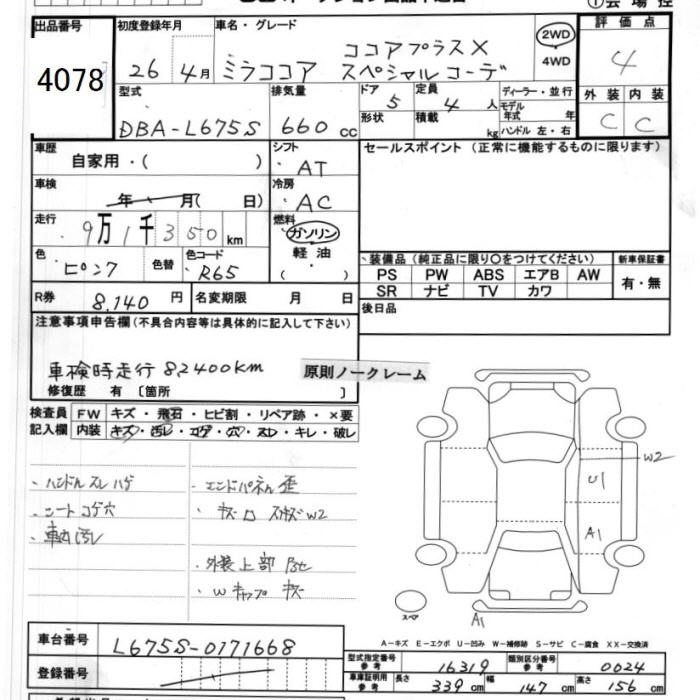 出品番号
4078
初度登録年月
26 4月
車名・グレード
ミラココア ココアプラスX スペシャルコーデ
2WD
4WD
評価点
4
外装 内装
C C
型式
DBA-L675S
排気量
660 cc
ドア
5
定員
4 人
形状
積載
kg
ディーラー・並行
モデル年式 年
ハンドル 左・右
車歴
自家用・( )
シフト
AT
セールスポイント (正常に機能するものに限ります)
車検
年 月( 日)
冷房
AC
走行
9万1千350 km
燃料
ガソリン
軽油
( )
色
ピンク
色替
色コード
R65
装備品 (純正品に限り○をつけてください)
PS PW ABS エアB AW
SR ナビ TV カワ
新車保証書
有・無
R券
8,140 円
名変期限 月 日
後日品
注意事項申告欄 (不具合内容等は具体的に記入して下さい)
車検時走行 82400km
原則ノークレーム
修復歴 有 〔箇所 〕
検査員記入欄
FW キズ・飛石・ヒビ割・リペア跡・×要
内装 キズ・汚レ・コゲ・穴・スレ・キレ・破レ
・ハンドルスレハゲ
・シートコゲ穴
・車内汚レ
・エンドパネル歪
・外装上部
・Wキャップ キズ
W2
U1
A1
A1
スペア
A－キズ E－エクボ U－凹み W－補修跡 S－サビ C－腐食 XX－交換済
車台番号
L675S-0171668
登録番号
型式指定番号 参考
16319
類別区分番号 参考
0024
車庫証明用 参考
長さ 339 cm
幅 147 cm
高さ 156 cm